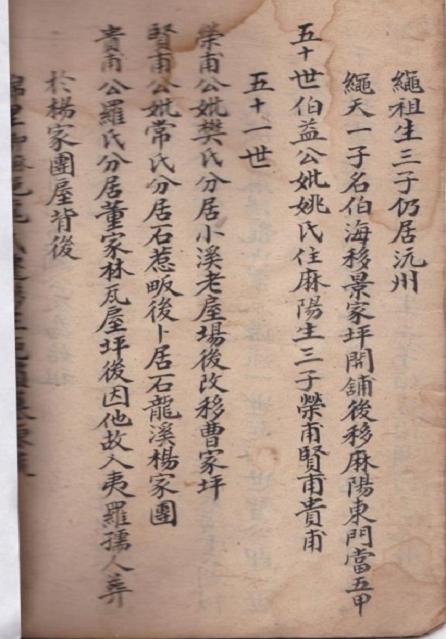 繩祖生三子仍居沅州
繩天一子名伯海移景家坪開舖後移麻陽東門當五甲
五十世伯益公妣姚氏住麻陽生三子榮甫賢甫貴甫
五十一世
榮甫公妣樊氏分居小溪老屋場後改移曹家坪
賢甫公妣常氏分居石惹畈後卜居石龍溪楊家團
貴甫公羅氏分居董家林瓦屋坪後因他故入夷羅孺人葬
於楊家團屋背後